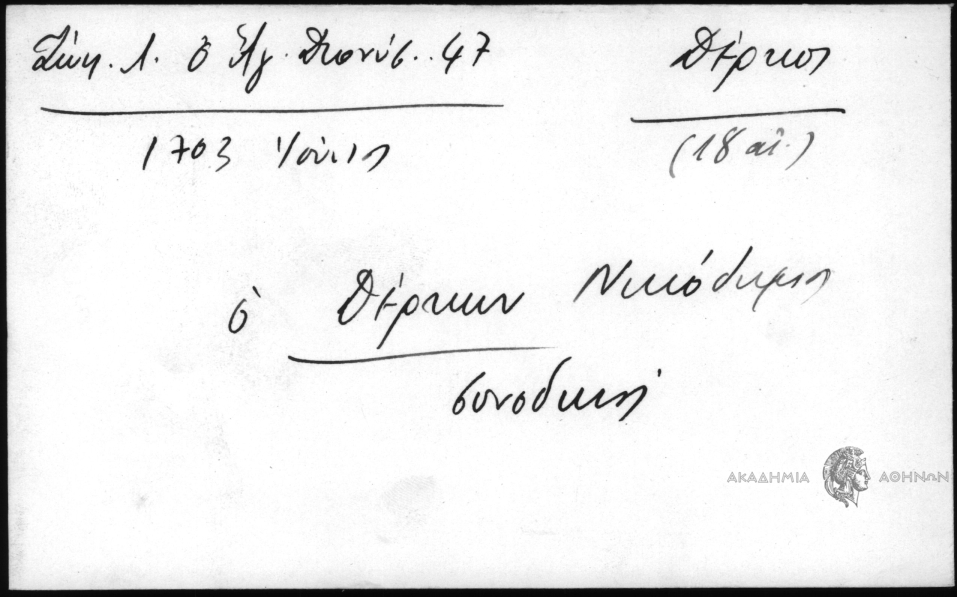 Σωφ. Λ. ὁ Ἅγ. Διονύσ.. 47
Δέρκοι
1703 Ἰούνιος
(18 αἰ.)
ὁ Δέρκων Νικόδημος
συνοδικός
ΑΚΑΔΗΜΙΑ ΑΘΗΝΩΝ